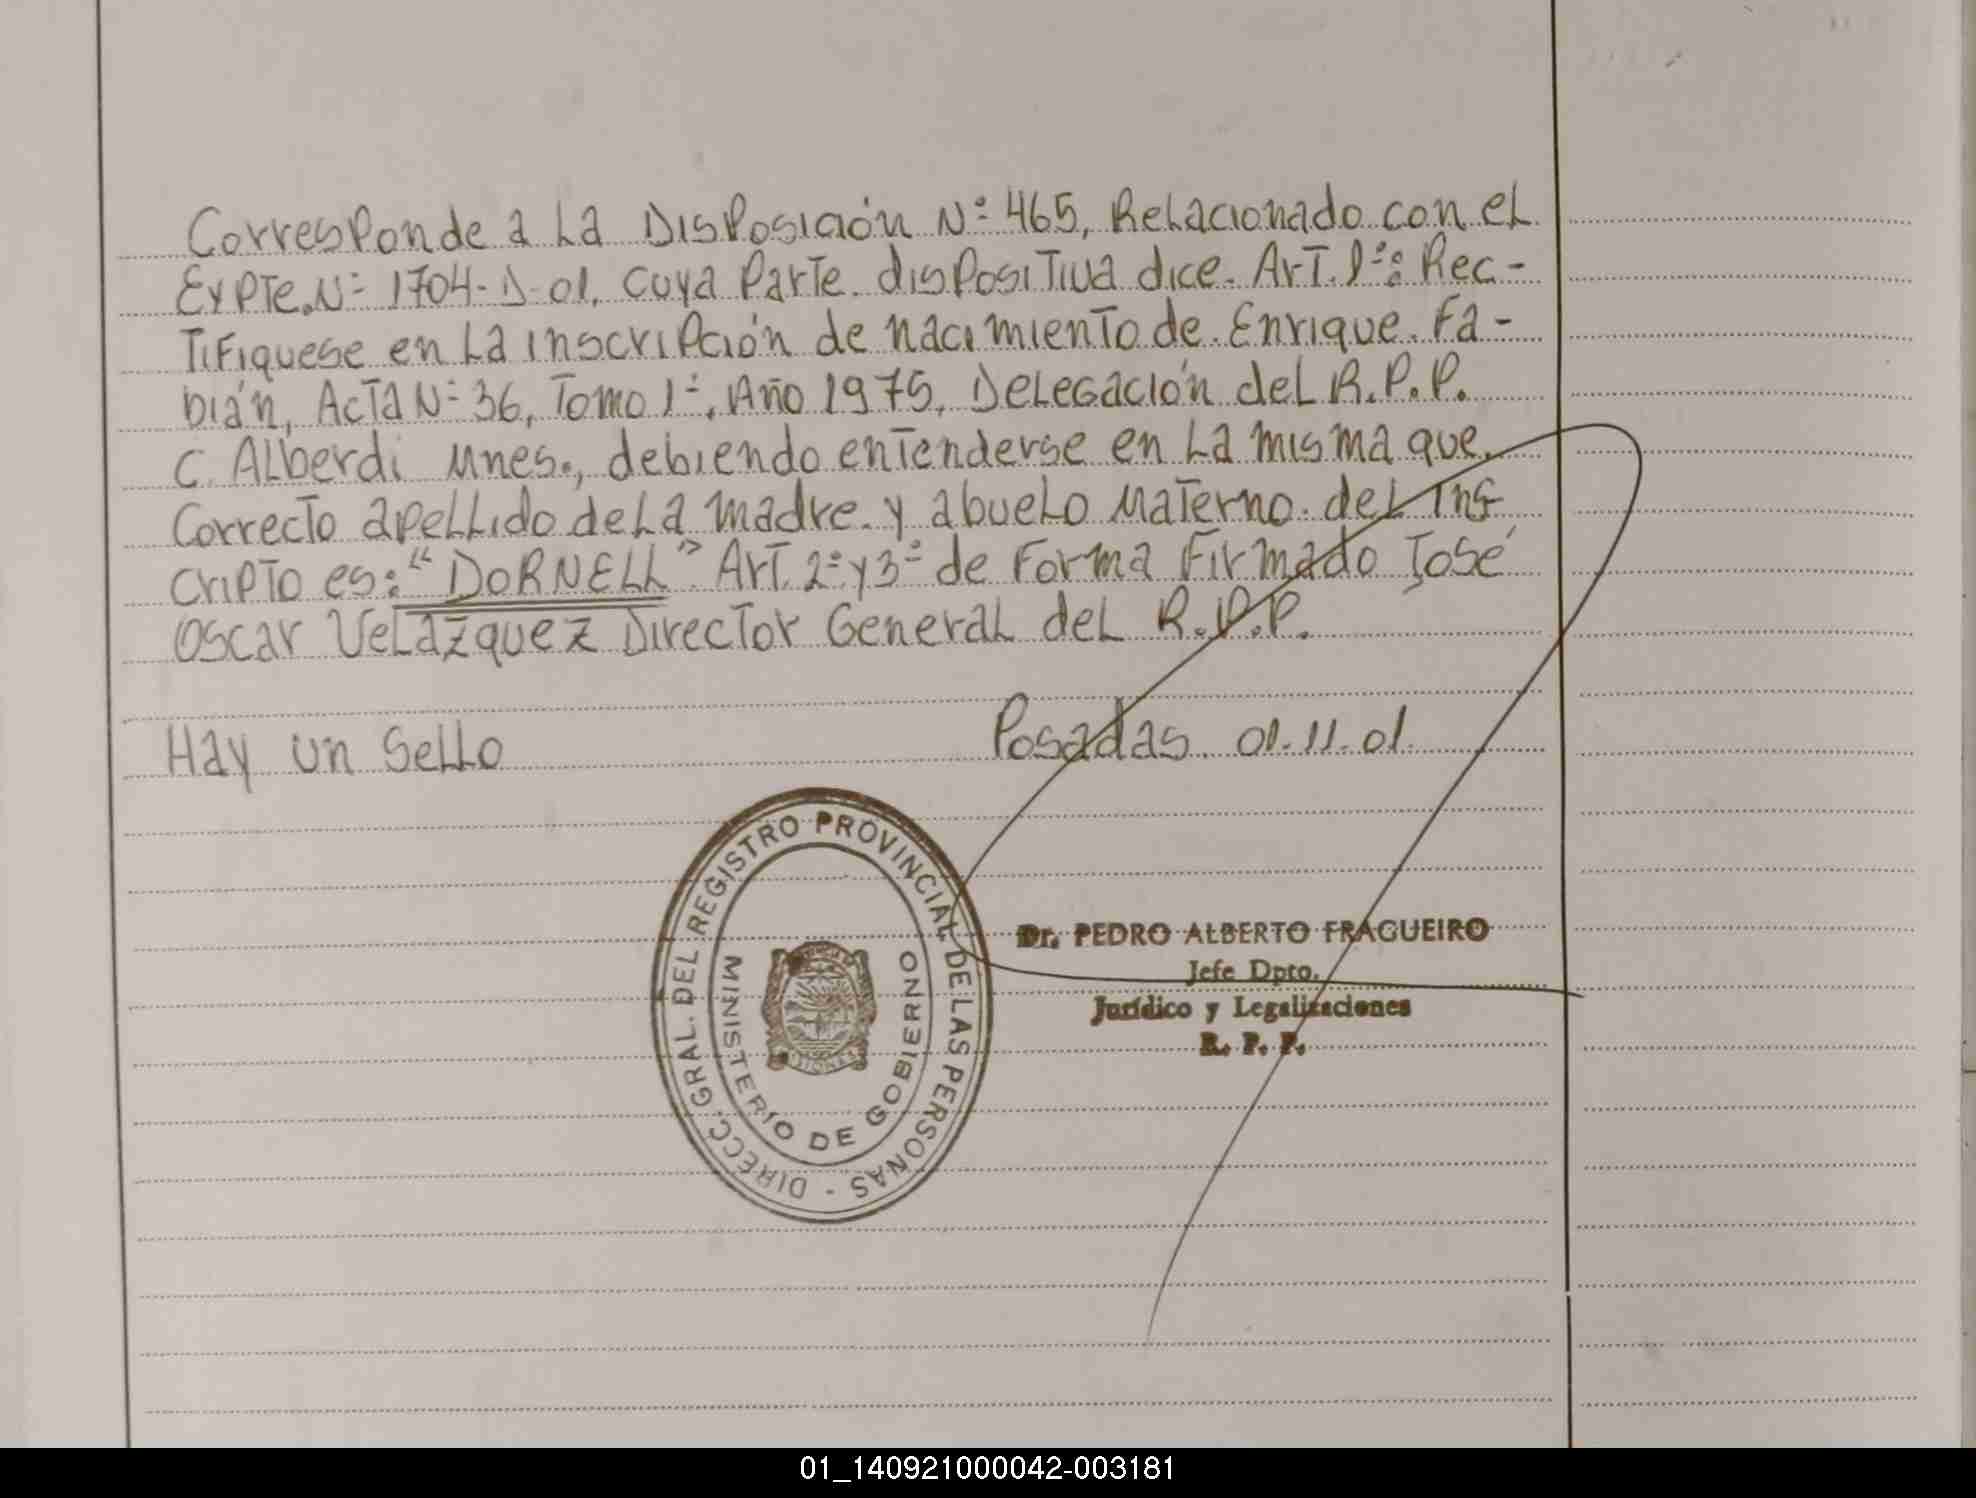 Corresponde a La Disposición Nº 465, Relacionado con el
Expte. Nº 1704-D-01, cuya Parte dispositiva dice. Art. 1º: Rec-
tifiquese en La inscripción de nacimiento de Enrique Fa-
bián, Acta Nº 36, Tomo 1º, Año 1975, Delegación del R.P.P.
C. Alberdi Mnes., debiendo entenderse en La misma que
Correcto apellido de La madre y abuelo Materno del Ins
cripto es: "DORNELL" Art. 2º y 3º de Forma Firmado José
Oscar Velazquez Director General del R.P.P.
Hay un Sello Posadas 01.11.01.
DIRECC. GRAL. DEL REGISTRO PROVINCIAL DE LAS PERSONAS -
MINISTERIO DE GOBIERNO
Dr. PEDRO ALBERTO FRAGUEIRO
Jefe Dpto.
Jurídico y Legalizaciones
R. P. P.
01_140921000042-003181